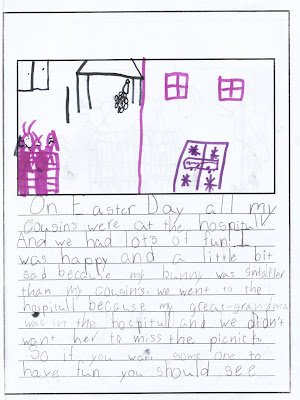 On Easter Day all my
cousins were at the hospitll
And we had lots of fun! I
was happy and a little bit
sad because my bunny was smaller
than my cousins. we went to the
hospitull because my great-grandma
was in the hospitull and we didn't
want her to miss the picnic.
So if you want some one to
have fun you should see